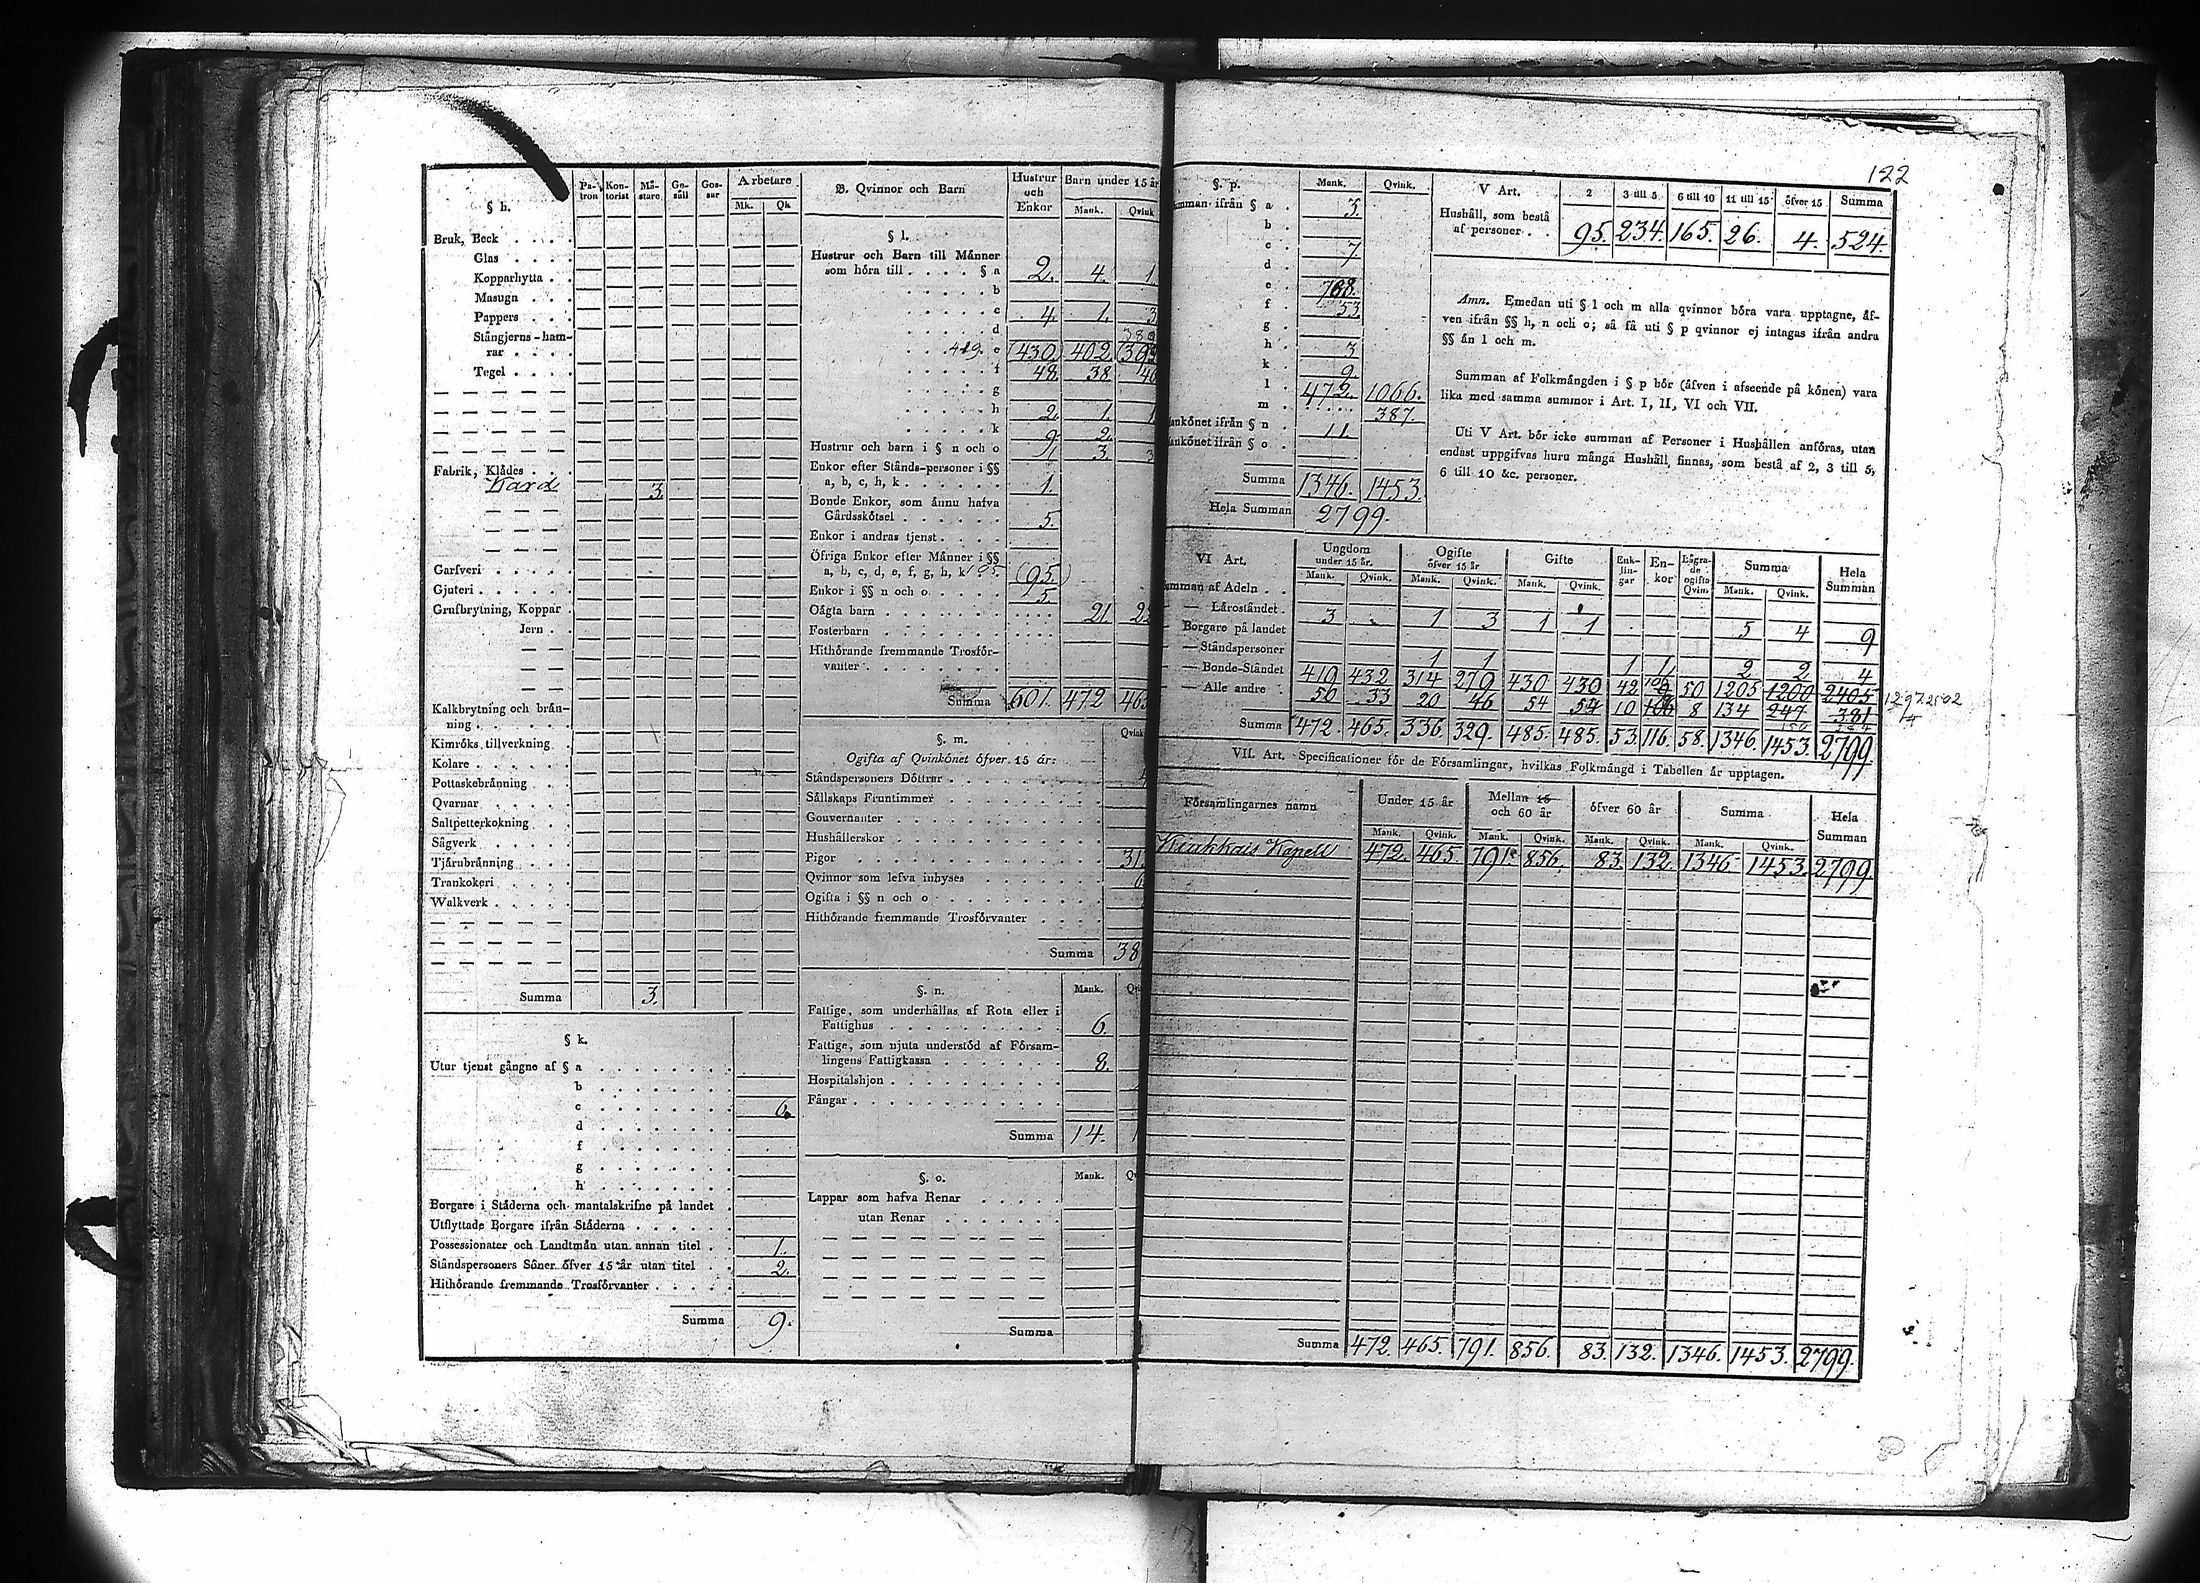 122
§ h.
Pa- tron
Kon- torist
Må- stare
Ge- säll
Gos- sar
Arbetare
Mk. Qk
Bruk, Beck
Glas
Kopparhytta
Masugn
Pappers
Stångjerns-ham-
rar
Tegel
Fabrik, Klådes
Kard 3.
Garfveri
Gjuteri
Grufbrytning, Koppar
Jern
Kalkbrytning och brån-
ning
Kimröks tillverkning
Kolare
Pottaskebrånning
Qvarnar
Saltpetterkokning
Sågverk
Tjårubrånning
Trankokeri
Walkverk
Summa 3.
§ k.
Utur tjenst gångne af § a
b
c 6.
d
f
g
h
Borgare i Ståderna och mantalskrifne på landet
Utflyttade Borgare ifrån Ståderna
Possessionater och Landtmån utan annan titel 1.
Ståndspersoners Söner öfver 15 år utan titel 2.
Hithörande fremmande Trosförvanter
Summa 9.
B. Qvinnor och Barn
Hustrur och Enkor
Barn under 15 år
Mank. Qvink
§ l.
Hustrur och Barn till Månner
som höra till § a 2. 4. 1.
b
c 4. 1. 3
d
419. e (430) 402
f 48. 38. 40
g
h 2. 1. 1.
k 9. 2.
Hustrur och barn i § n och o 3. 3
Enkor efter Stånds-personer i §§
a, b, c, h, k 1.
Bonde Enkor, som ånnu hafva
Gårdsskötsel 5.
Enkor i andras tjenst
Öfriga Enkor efter Månner i §§
a, b, c, d, e, f, g, h, k (95.)
Enkor i §§ n och o 5.
Oågta barn 21. 22
Fosterbarn
Hithörande fremmande Trosför-
vanter
Summa 601. 472 465
§. m.
Qvink
Ogifta af Qvinkönet öfver 15 år:
Ståndspersoners Döttrar 4
Sållskaps Fruntimmer
Gouvernanter
Hushållerskor
Pigor 31
Qvinnor som lefva inhyses 6
Ogifta i §§ n och o
Hithörande fremmande Trosförvanter
Summa 38
§. n.
Mank.
Fattige, som underhållas af Rota eller i
Fattighus 6.
Fattige, som njuta understöd af Församlingens Fattigkassa 8.
Hospitalshjon
Fångar
Summa 14. 1
§. o.
Mank.
Lappar som hafva Renar
utan Renar
Summa
§. p. Mank. Qvink.
mman ifrån § a 3.
b
c 7
d
e 788.
f 53
g
h 3
k 9.
l 472. 1066.
m 387.
ankönet ifrån § n 11.
ankönet ifrån § o
Summa 1346. 1453.
Hela Summan 2799.
V Art. 2 3 till 5 6 till 10 11 till 15 öfver 15 Summa
Hushåll, som bestå
af personer 95. 234. 165. 26. 4. 524.
Anm. Emedan uti § l och m alla qvinnor böra vara upptagne, åf-
ven ifrån §§ h, n och o; så få uti § p qvinnor ej intagas ifrån andra
§§ ån l och m.
Summan af Folkmången i § p bör (åfven i afseende på könen) vara
lika med samma summor i Art. I, II, VI och VII.
Uti V Art. bör icke summan af Personer i Hushållen anföras, utan
endast uppgifvas huru många Hushåll finnas, som bestå af 2, 3 till 5,
6 till 10 &c. personer.
VI Art.
Ungdom under 15 år.
Ogifte öfver 15 år
Gifte
Enk- lin- gar
En- kor
Lågra- de ogifta Qvin.
Summa
Hela Summan
Mank. Qvink. Mank. Qvink. Mank. Qvink. Mank. Qvink.
mman af Adeln
— Låroståndet 3 1 3 1 1 5 4 9
Borgare på landet
— Ståndspersoner 1 1 1 1 2 2 4
— Bonde-Ståndet 419 432 314 279 430 430 42 50 1205 1200 2405
— Alle andre 50 33 20 46 54 54 10 106 8 134 247 381
Summa 472. 465. 336. 329. 485. 485. 53. 116. 58. 1346. 1453 2799.
VII. Art. Specificationer för de Församlingar, hvilkas Folkmångd i Tabellen år upptagen.
Församlingarnes namn
Under 15 år
Mellan 15 och 60 år
öfver 60 år
Summa
Hela Summan
Mank. Qvink. Mank. Qvink. Mank. Qvink. Mank. Qvink.
Kiukkais Kapell 472. 465. 791. 856. 83. 132. 1346. 1453. 2799.
Summa 472. 465. 791. 856. 83. 132. 1346. 1453. 2799.